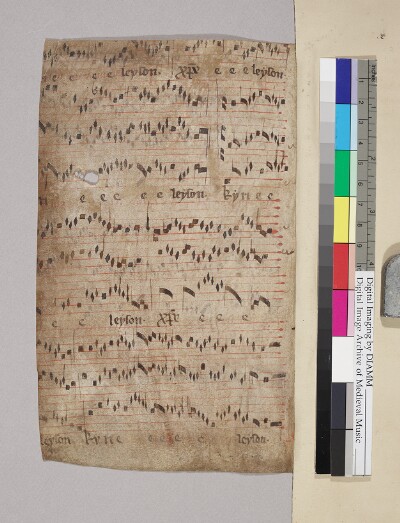 e e e e leyson. xpē e e e leyson
e e e e e leyson. kyrı e e
e e leyson. xpē e e e
leyson kyrı e e e e leyson.
Digital Imaging by DIAMM
Digital Image Archive of Medieval Music